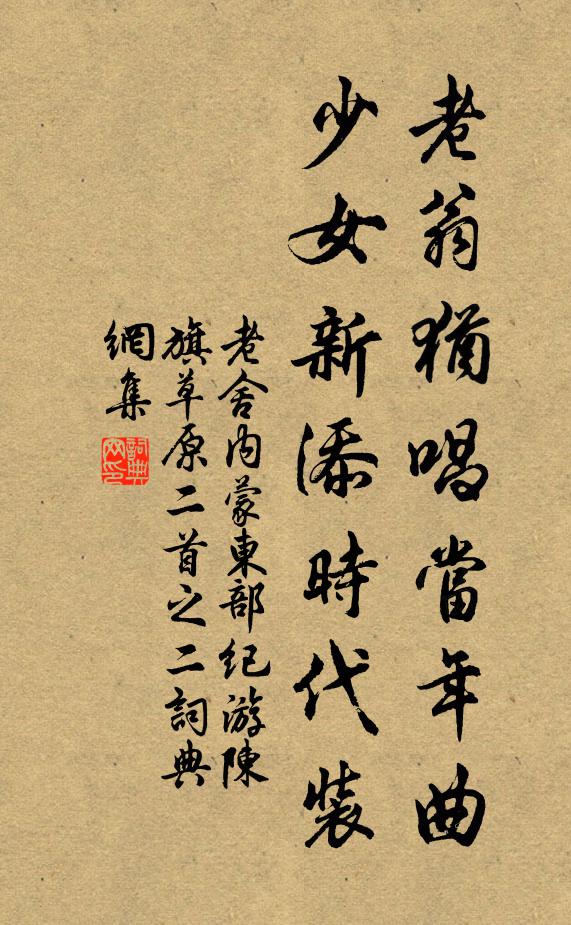 老翁猶唱當年曲
少女新添時代裝
老舍內蒙東部紀游陳
旗草原二首之二詞典
網集
詞典
网印